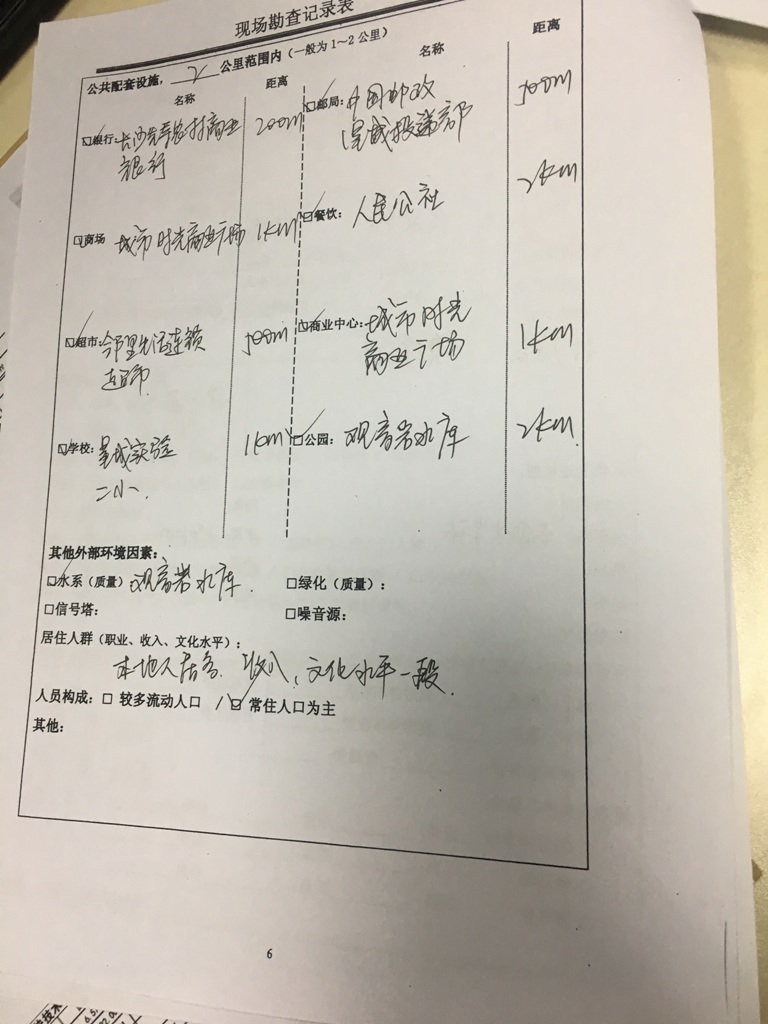 现场勘查记录表
公共配套设施, 2 公里范围内(一般为 1~2 公里)
名称 距离 名称 距离
☑银行: 长沙先导农村商业 200m
银行
☑邮局: 中国邮政 500m
星城投递部
☑商场 城市时光商业广场 1km
☑餐饮: 人民公社 2km
☑超市: 邻里生活连锁 500m
超市
☑商业中心: 城市时光 1km
商业广场
☑学校: 星城实验 1km
二小.
☑公园: 观音岩水库 2km
其他外部环境因素:
☑水系(质量) 观音岩水库. □绿化(质量):
□信号塔: □噪音源:
居住人群(职业、收入、文化水平):
本地人居多. 收入,文化水平一般.
人员构成: □ 较多流动人口 / ☑ 常住人口为主
其他:
6